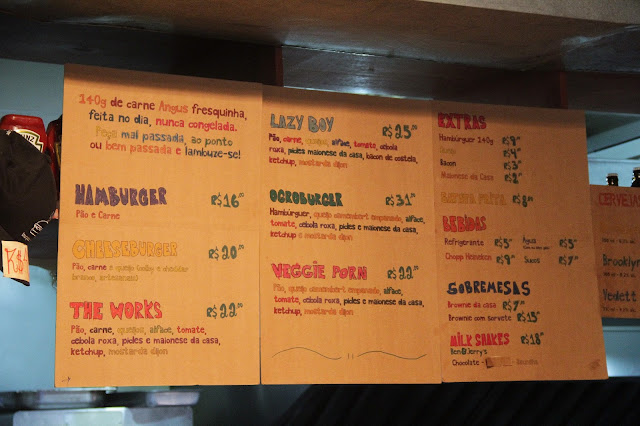 140g de carne Angus fresquinha,
feita no dia, nunca congelada.
Peça mal passada, ao ponto
ou bem passada e lambuze-se!
HAMBURGER R$16
Pão e Carne
CHEESEBURGER R$20
Pão, carne e queijo
THE WORKS R$22
Pão, carne, queijos, alface, tomate,
cebola roxa, picles e maionese da casa,
ketchup, mostarda dijon
LAZY BOY R$25
Pão, carne, queijos, alface, tomate, cebola
roxa, picles maionese da casa, bacon de costela,
ketchup, mostarda dijon
OGROBURGER R$31
Hambúrguer, queijo camembert empanado, alface,
tomate, cebola roxa, picles e maionese da casa,
ketchup e mostarda dijon
VEGGIE PORN R$22
Pão, queijo camembert empanado, alface,
tomate, cebola roxa, picles e maionese da casa,
ketchup, mostarda dijon
EXTRAS
Hambúrguer 140g R$9
R$4
Bacon R$3
Maionese da Casa R$2
BATATA FRITA R$8
BEBIDAS
Refrigerante R$5
Chopp Heineken R$9
Água R$5
Sucos R$7
SOBREMESAS
Brownie da casa R$7
Brownie com sorvete R$15
MILK SHAKES R$18
Ben & Jerry's
Chocolate - Baunilha
CERVEJAS
Brooklyn